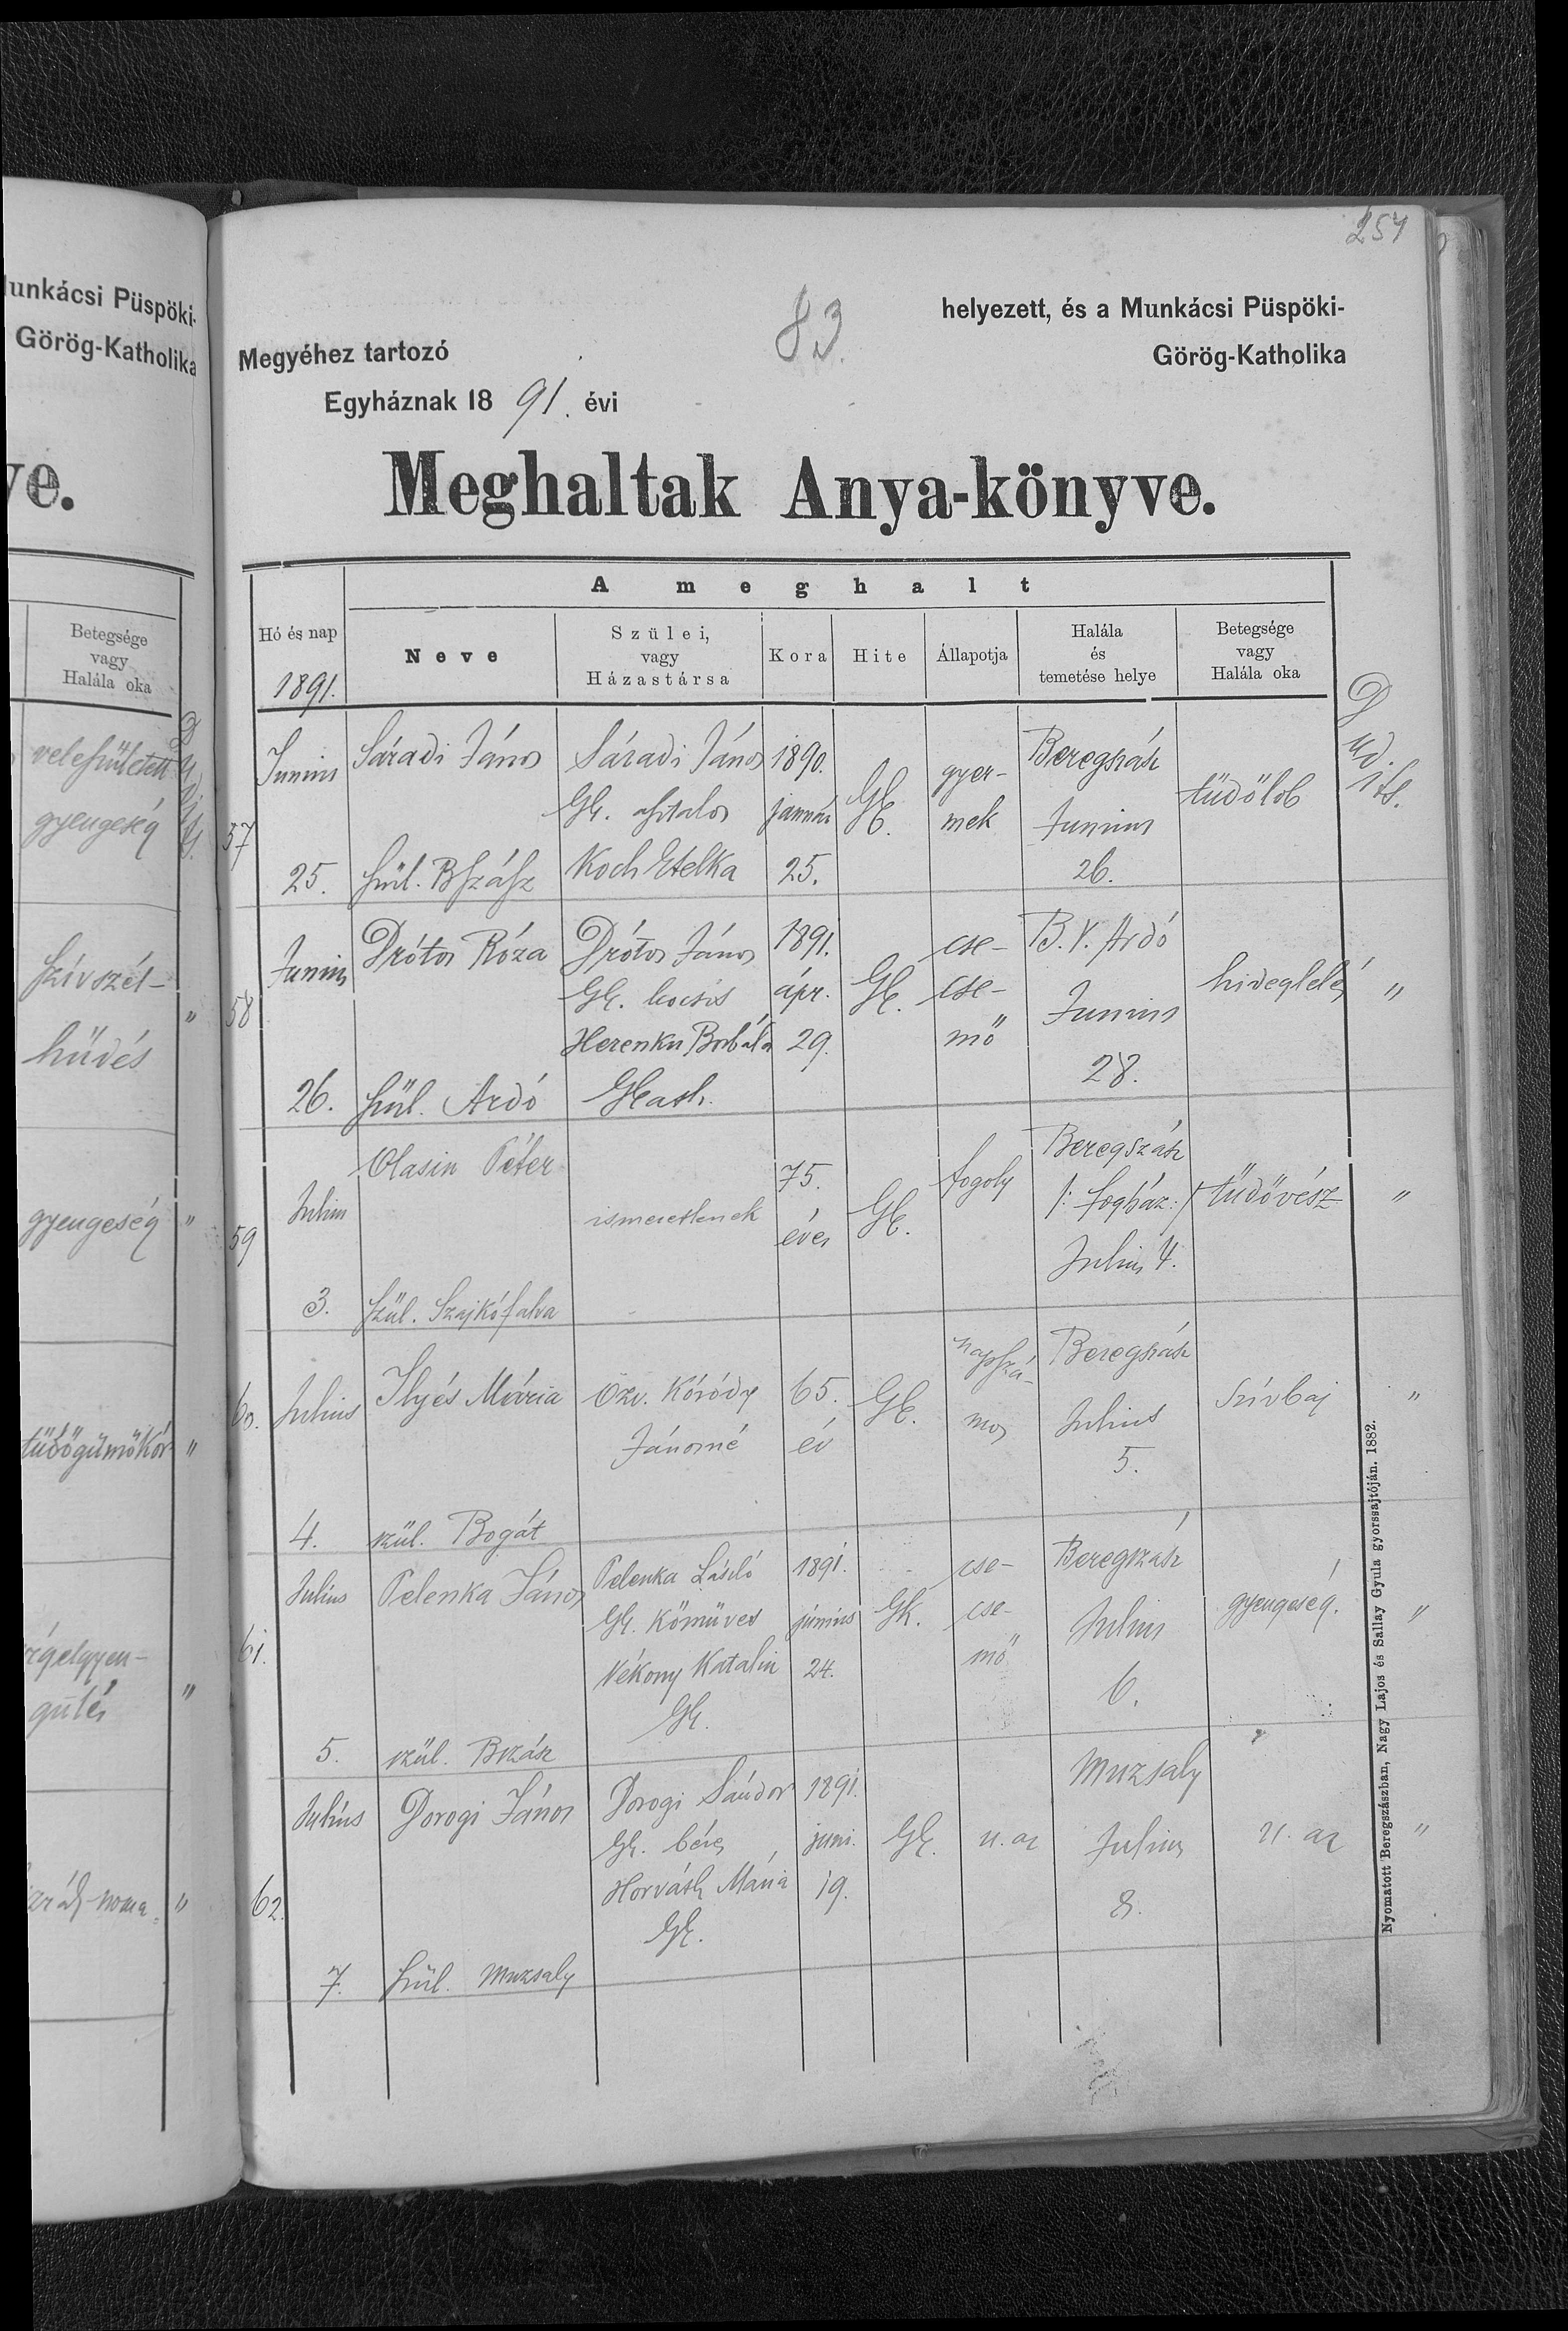 unkácsi Püspöki-
Görög-Katholika
ve.
Betegsége
vagy
Halála oka
veleszületett
gyengeség
szívszél-
hüdés
"
gyengeség "
tüdőgümőkór "
végelgyen-
gülés
"
noma "
254
83.
helyezett, és a Munkácsi Püspöki-
Megyéhez tartozó
Görög-Katholika
Egyháznak 1891. évi
Meghaltak Anya-könyve.
A meghalt
Hó és nap
1891.
Neve
Szülei,
vagy
Házastársa
Kora
Hite
Állapotja
Halála
és
temetése helye
Betegsége
vagy
Halála oka
57
Junius
25.
Sáradi János
szül. BSzász
Sáradi János
Gk. asztalos
Koch Etelka
1890.
január
25.
Gk.
gyer-
mek
Beregszász
Junius
26.
tüdőlob
58
Junius
26.
Drótos Róza
szül. Ardó
Drótos János
Gk. kocsis
Herenku Borbála
Gkath.
1891.
ápr.
29.
Gk.
cse-
cse-
mő
B. V. Ardó
Junius
28.
hideglelés
"
59
Julius
3.
Olasin Péter
szül. Szajkófalva
ismeretlenek
75.
éves
Gk.
fogoly
Beregszász
/: fogház :/
Julius 4.
tüdővész
"
60.
Julius
4.
Ilyés Mária
szül. Bogát
Özv. Kóródy
Jánosné
65.
év
Gk.
napszá-
mos
Beregszász
Julius
5.
Szívbaj
"
61.
Julius
5.
Pelenka János
szül. Bszász
Pelenka László
Gk. Kőműves
Vékony Katalin
Gk.
1891.
június
24.
Gk.
cse-
cse-
mő
Beregszász
Julius
6.
gyengeség.
"
62.
Julius
7.
Dorogi János
szül. Muzsaly
Dorogi Sándor
Gk. béres
Horváth Mária
Gk.
1891.
juni.
19.
Gk.
u. az
Muzsaly
Julius
8.
u. az
"
Nyomatott Beregszászban, Nagy Lajos és Sallay Gyula gyorssajtóján. 1882.